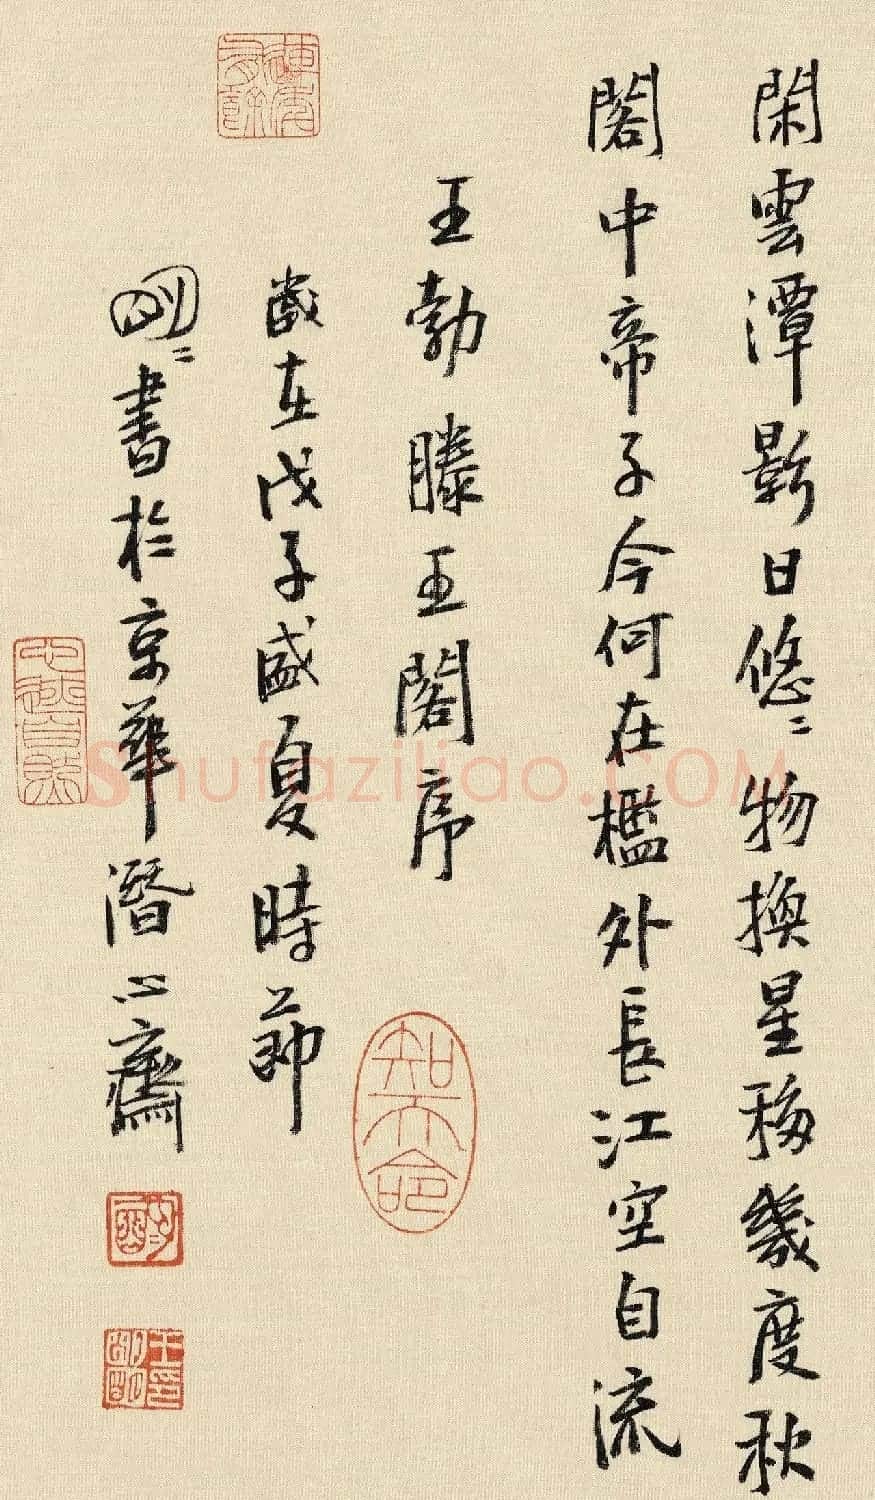 閑雲潭影日悠〻物換星移幾度秋
閣中帝子今何在檻外長江空自流
王勃滕王閣序
歲在戊子盛夏時節
明〻書於京華潛心齋
知天命
心遊自然
Shufaziliao.COM